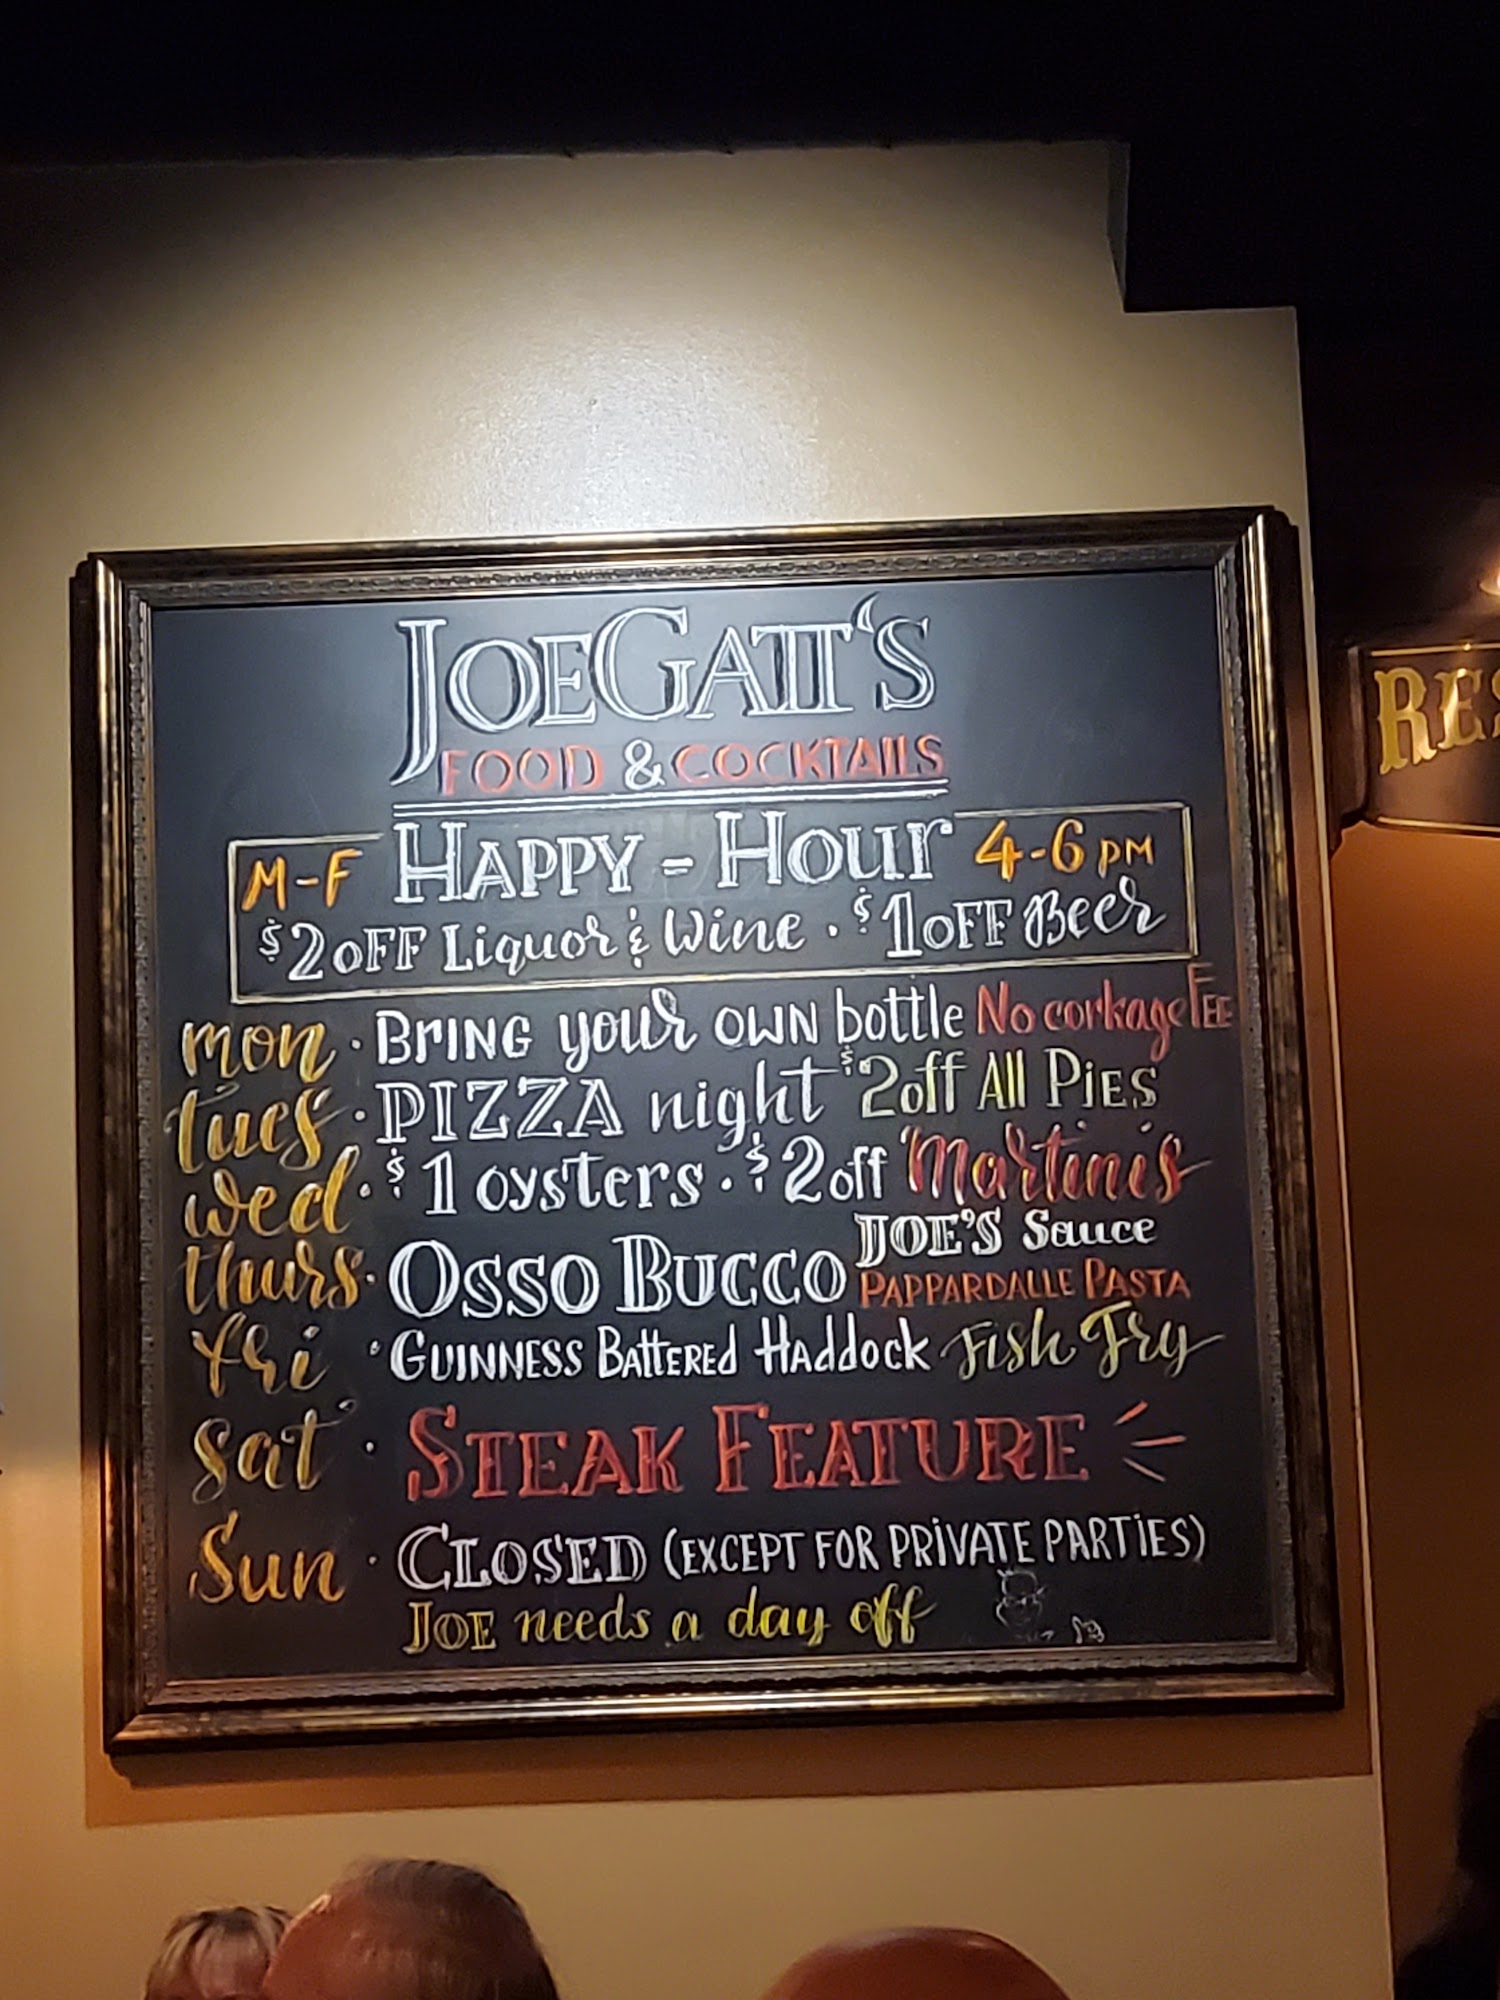 JoeGatt's
Food & Cocktails
M-F Happy-Hour 4-6 pm
$2 off Liquor & Wine · $1 off Beer
mon · Bring your own bottle No corkage Fee
tues · Pizza night $2 off All Pies
wed · $1 oysters · $2 off Martinis
thurs · Osso Bucco Joe's Sauce
Pappardalle Pasta
fri · Guinness Battered Haddock Fish Fry
Sat · Steak Feature
Sun · Closed (except for private parties)
Joe needs a day off
RES